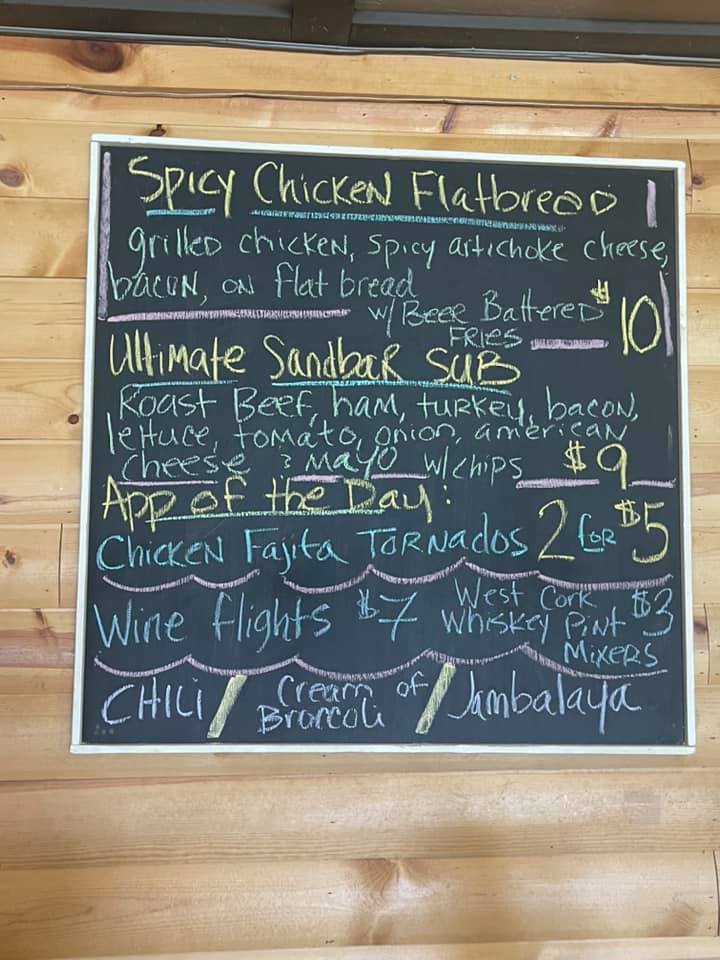 Spicy Chicken Flatbread
grilled chicken, spicy artichoke cheese,
bacon, on flat bread
w/ Beer Battered
FRIES $10
Ultimate Sandbar SUB
Roast Beef, ham, turkey, bacon,
lettuce, tomato, onion, american
cheese & mayo w/chips $9
App of the Day:
Chicken Fajita Tornados 2 for $5
Wine flights $7
West Cork
Whiskey Pint
Mixers $3
CHILI / Cream of Broccoli / Jambalaya